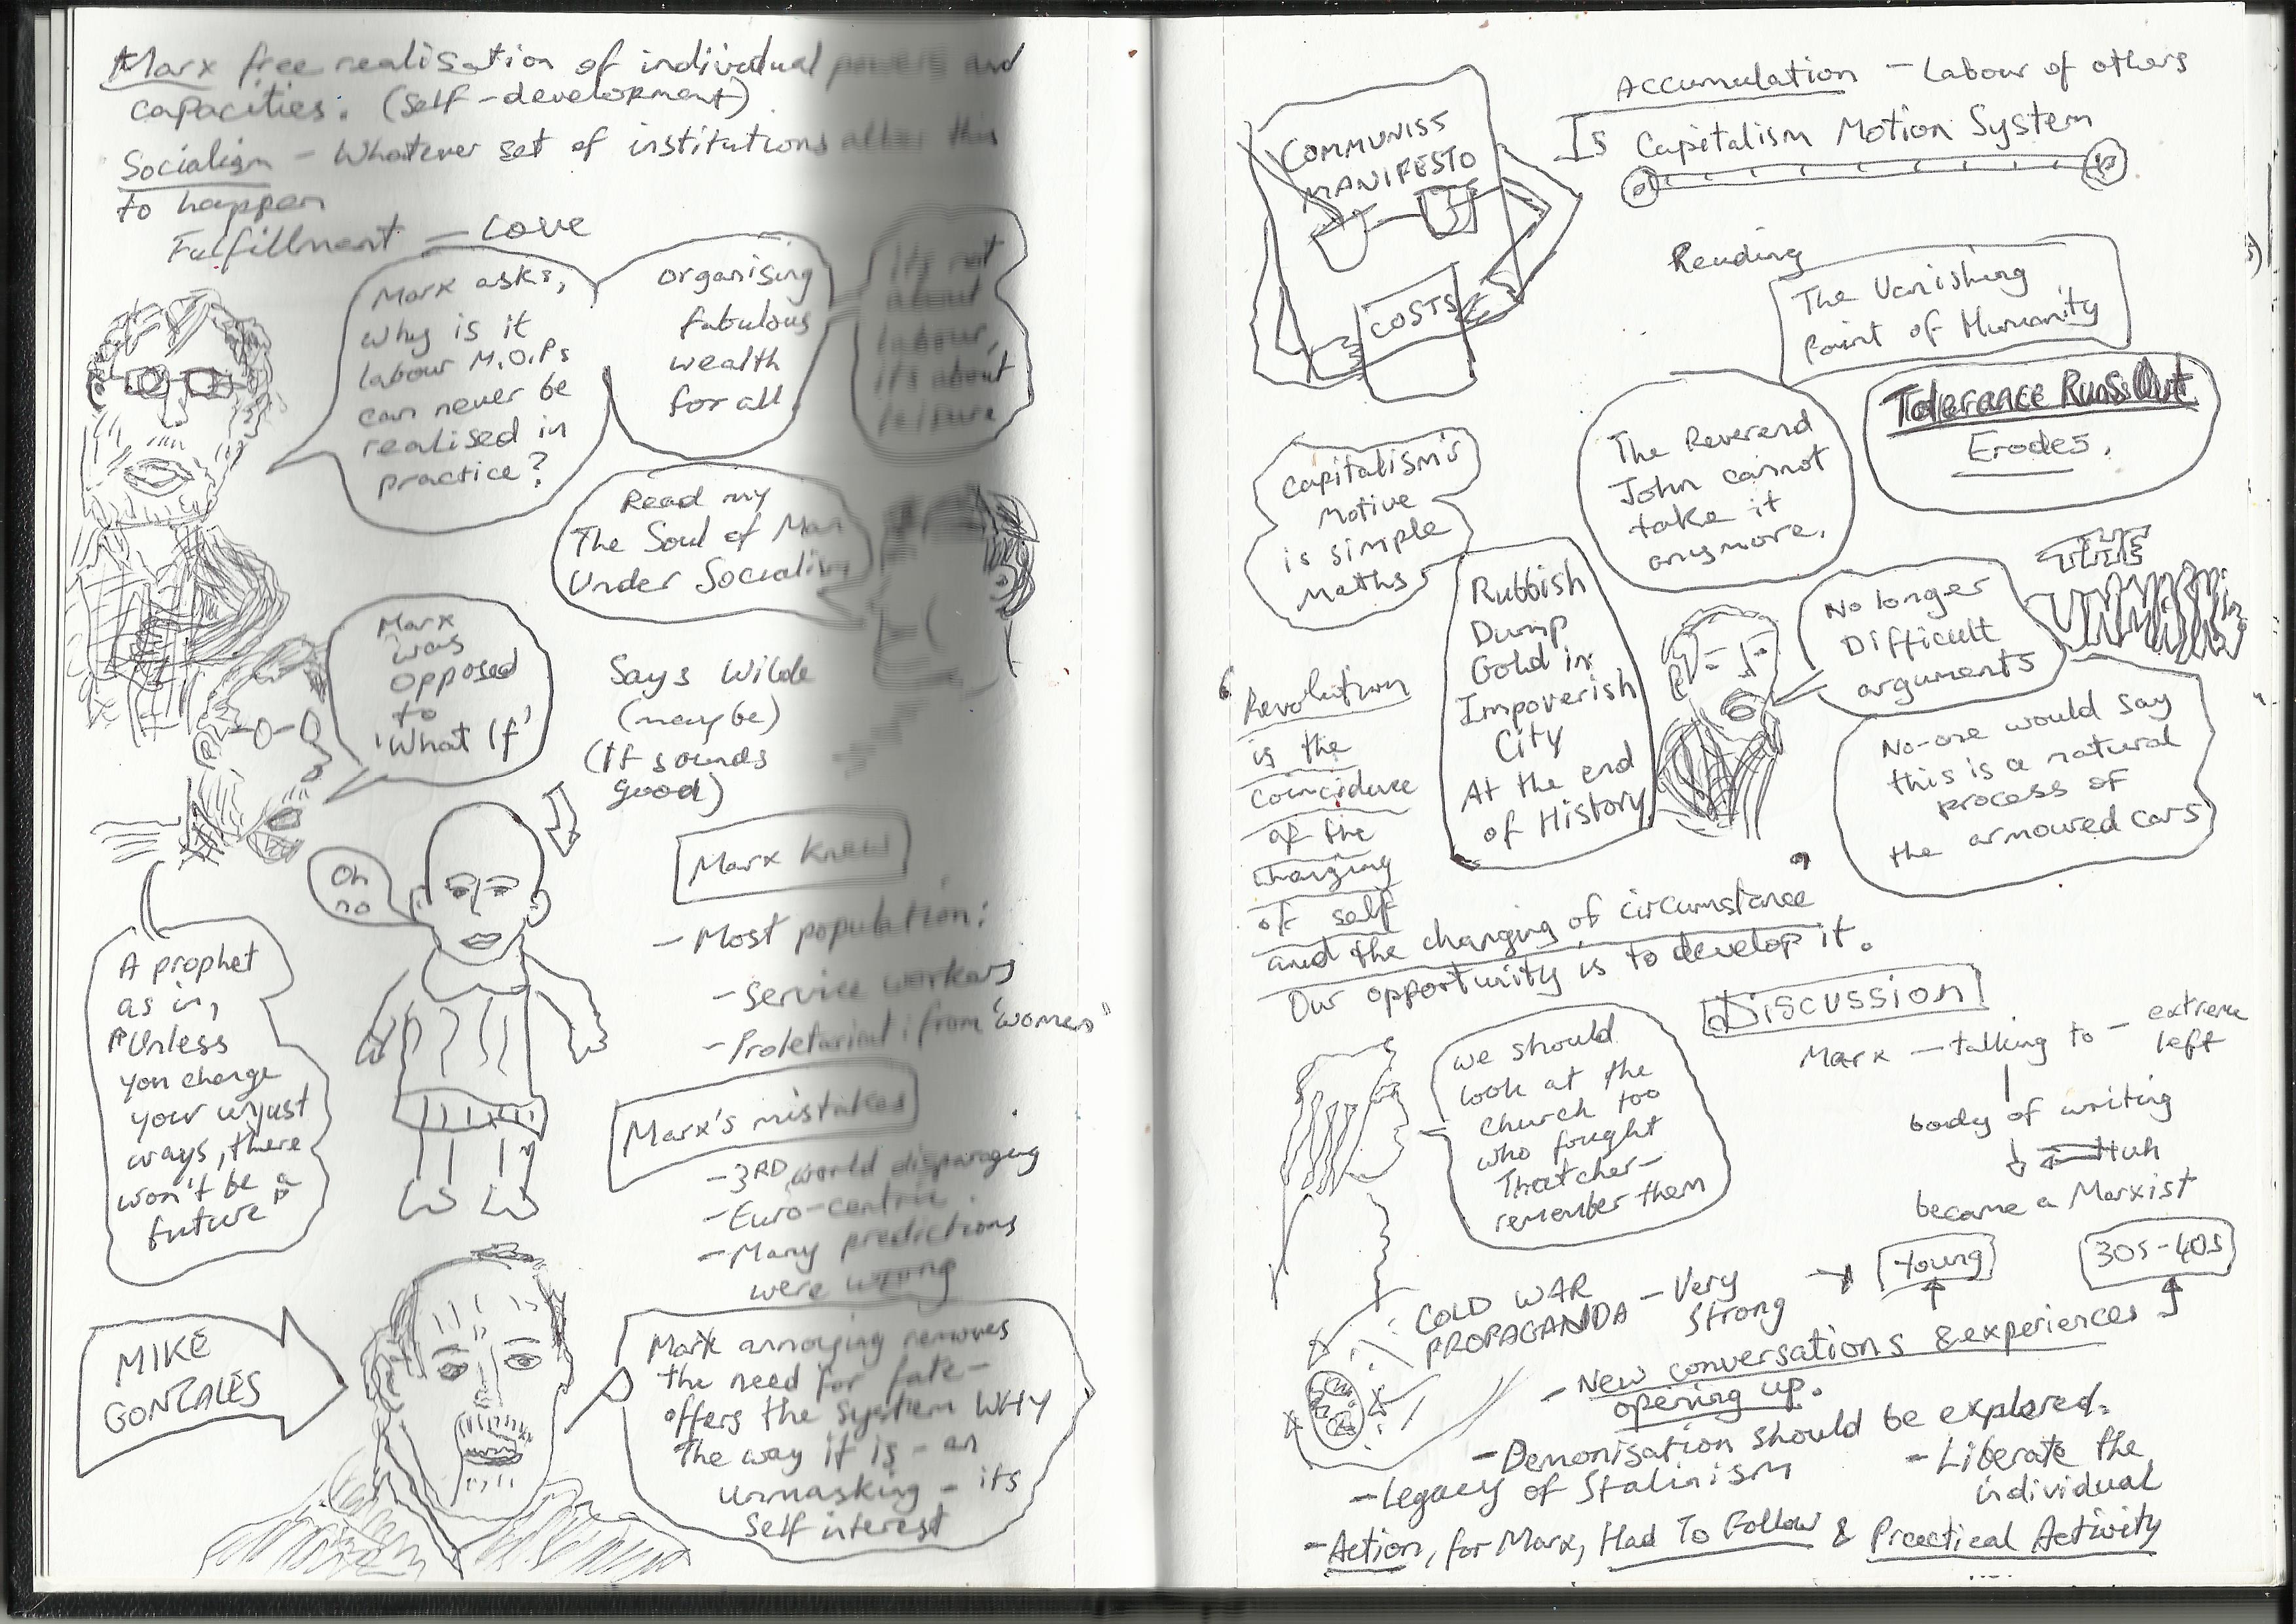 Marx free realisation of individual powers and
capacities. (self-development)
Socialism - Whatever set of institutions allow this
to happen
Fulfillment - Love
Marx asks,
why is it
labour M.O.Ps
can never be
realised in
practice?
organising
fabulous
wealth
for all
It's not
about
labour,
it's about
leisure
Read my
The Soul of Man
Under Socialism
Marx
was
opposed
to
'What If'
Says Wilde
(maybe)
(It sounds
good)
Oh
no
A prophet
as in,
"Unless
you change
your unjust
ways, there
won't be a
future"
Marx knew
- Most population:
- Service workers
- Proletariat: from "women"
Marx's mistakes
- 3RD world disparaging
- Euro-centric.
- Many predictions
were wrong
MIKE
GONZALES
Marx annoying removes
the need for fate-
offers the system WHY
The way it is - an
unmasking - its
self interest
COMMUNISS
MANIFESTO
COSTS
Accumulation - Labour of others
Is Capitalism Motion System
Reading
The Vanishing
Point of Humanity
Tolerance Runs Out
Erodes.
The Reverend
John cannot
take it
anymore.
Capitalism's
motive
is simple
maths
Rubbish
Dump
Gold in
Impoverish
City
At the end
of History
No longer
Difficult
arguments
THE
UNMASKIN
No-one would say
this is a natural
process of
the armoured cars
'Revolution
is the
coincidence
of the
changing
of self
and the changing of circumstance'
Our opportunity is to develop it.
we should
look at the
church too
who fought
Thatcher-
remember them
Discussion
Marx - talking to - extreme
left
body of writing
Huh
became a Marxist
Young
30s-40s
COLD WAR
PROPAGANDA - Very
Strong
- New conversations & experiences
opening up.
- Demonisation should be explored.
- Legacy of Stalinism
- Liberate the
individual
- Action, for Marx, Had To Follow & Practical Activity